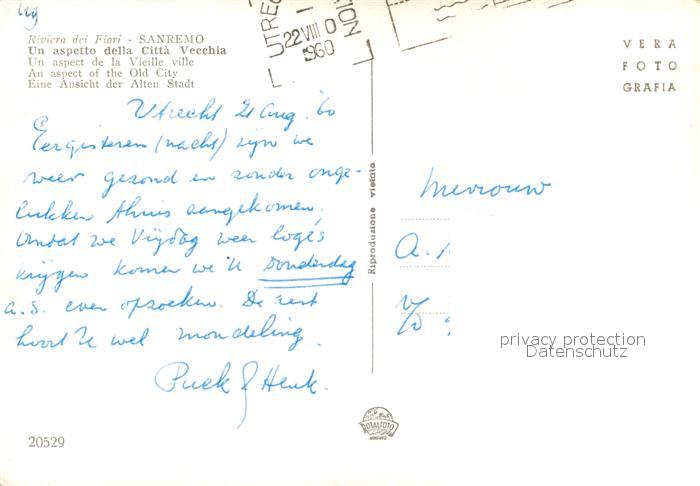 Riviera dei Fiori - SANREMO
Un aspetto della Città Vecchia
Un aspect de la Vieille ville
An aspect of the Old City
Eine Ansicht der Alten Stadt
UTREC
22 VIII 0
1960
VERA
FOTO
GRAFIA
Utrecht 21 Aug. '60
Eergisteren (nacht) zijn we
weer gezond en zonder onge-
lukken thuis aangekomen.
Omdat we Vrijdag weer logé's
krijgen komen we U Donderdag
a.s. even opzoeken. De rest
hoort U wel mondeling.
Puck & Henk.
Riproduzione vietata
Mevrouw
A.
privacy protection
Datenschutz
ROTALFOTO
20529